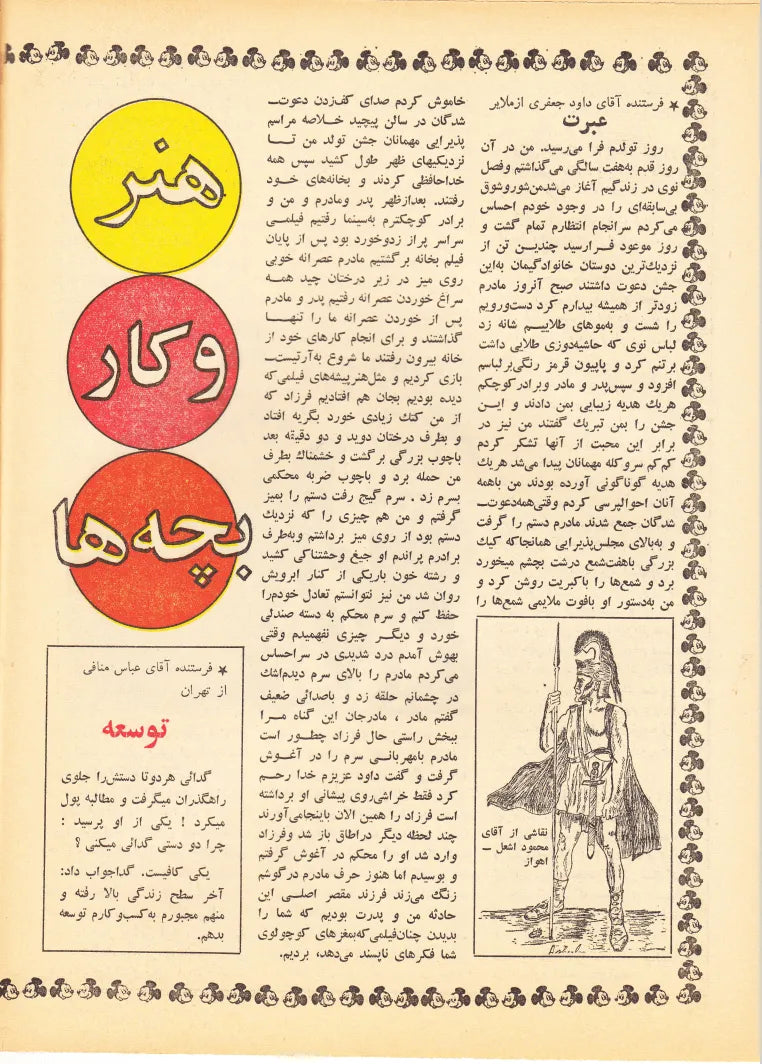 هنر
و کار
بچه ها
★ فرستنده آقای داود جعفری ازملایر
عبرت
روز تولدم فرا می‌رسید. من در آن
روز قدم به‌هفت سالگی می‌گذاشتم وفصل
نوی در زندگیم آغاز می‌شدمن‌شوروشوق
بی‌سابقه‌ای را در وجود خودم احساس
می‌کردم سرانجام انتظارم تمام گشت و
روز موعود فـرارسید چندیـن تن از
نزدیك‌ترین دوستان خانوادگیمان به‌این
جشن دعوت داشتند صبح آنروز مادرم
زودتر از همیشه بیدارم کرد دست‌ورویم
را شست و به‌موهای طلاییـم شانه زد
لباس نوی که حاشیه‌دوزی طلایی داشت
برتنم کرد و پاپیون قرمز رنگی‌برلباسم
افزود و سپس‌پدر و مادر وبرادرکوچکم
هریك هدیه زیبایی بمن دادند و ایـن
جشن را بمن تبریك گفتند من نیز در
برابر این محبت از آنها تشکر کردم
کم‌کم سروکله مهمانان پیدا می‌شد هریك
هدیه گوناگونی آورده بودند من باهمه
آنان احوالپرسی کردم وقتی‌همه‌دعوت‌ـ
شدگان جمع شدند مادرم دستم را گرفت
و به‌بالای مجلس‌پذیرایی همانجاکه کیك
بزرگی باهفت‌شمع درشت بچشم میخورد
برد و شمع‌ها را باکبریت روشن کرد و
من به‌دستور او بافوت ملایمی شمع‌ها را
خاموش کردم صدای کف‌زدن دعوت‌ـ
شدگان در سالن پیچید خـلاصه مراسم
پذیرایی مهمانان جشن تولد من تـا
نزدیکیهای ظهر طول کشید سپس همه
خداحافظی کردند و بخانه‌های خـود
رفتند. بعدازظهر پدر ومادرم و من و
برادر کوچکترم به‌سینما رفتیم فیلمـی
سراسر پراز زدوخورد بود پس از پایان
فیلم بخانه برگشتیم مادرم عصرانه خوبی
روی میز در زیر درختان چید همـه
سراغ خوردن عصرانه رفتیم پدر و مادرم
پس از خوردن عصرانه ما را تنهـا
گذاشتند و برای انجام کارهای خود از
خانه بیرون رفتند ما شروع به‌آرتیست‌ـ
بازی کردیم و مثل‌هنرپیشه‌های فیلمی‌که
دیده بودیم بجان هم افتادیم فرزاد که
از من کتك زیادی خورد بگریه افتاد
و بطرف درختان دوید و دو دقیقه بعد
باچوب بزرگی برگشت و خشمناك بطرف
من حمله برد و باچوب ضربه محکمی
بسرم زد . سرم گیج رفت دستم را بمیز
گرفتم و من هم چیزی را که نزدیك
دستم بود از روی میز برداشتم وبه‌طرف
برادرم پراندم او جیغ وحشتناکی کشید
و رشته خون باریکی از کنار ابرویش
روان شد من نیز نتوانستم تعادل خودم‌را
حفظ کنم و سرم محکم به دسته صندلی
خورد و دیگـر چیزی نفهمیدم وقتی
بهوش آمدم درد شدیدی در سراحساس
می‌کردم مادرم را بالای سرم دیدم‌اشك
در چشمانم حلقه زد و باصدائی ضعیف
گفتم مادر ، مادرجان این گناه مـرا
ببخش راستی حال فرزاد چطـور است
مادرم بامهربانـی سرم را در آغـوش
گرفت و گفت داود عزیزم خدا رحـم
کرد فقط خراشی‌روی پیشانی او برداشته
است فرزاد را همین الان باینجامی‌آورند
چند لحظه دیگر دراطاق باز شد وفرزاد
وارد شد او را محکم در آغوش گرفتم
و بوسیدم اما هنوز حرف مادرم درگوشم
زنگ می‌زند فرزند مقصر اصلـی این
حادثه من و پدرت بودیم که شما را
بدیدن چنان‌فیلمی‌که‌بمغزهای کوچولوی
شما فکرهای ناپسند می‌دهد، بردیم.
نقاشی از آقای
محمود اشعل ـ
اهواز
★ فرستنده آقای عباس منافی
از تهران
توسعه
گدائی هردوتا دستش‌را جلوی
راهگذران میگرفت و مطالبه پول
میکرد ! یکی از او پرسید :
چرا دو دستی گدائی میکنی ؟
یکی کافیست. گداجواب داد:
آخر سطح زندگی بالا رفته و
منهم مجبورم به‌کسب‌وکارم توسعه
بدهم.